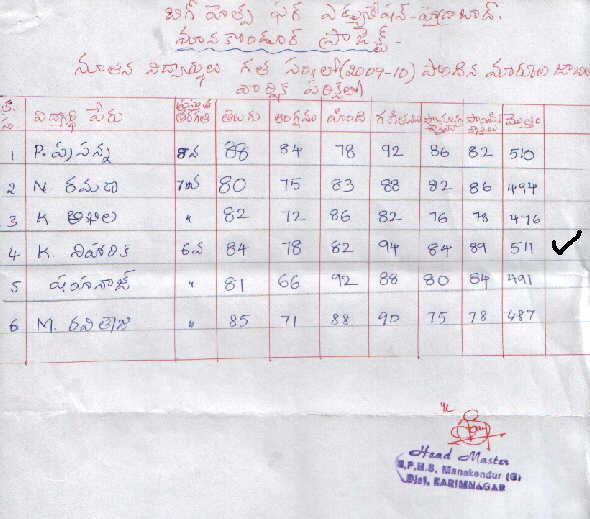 బిగ్ హెల్ప్ ఫర్ ఎడ్యుకేషన్-హైదరాబాద్.
మానకొండూర్ ప్రాజెక్ట్ -
నూతన విద్యార్థులు గత సం॥లో (2009-10) పొందిన మార్కుల
వార్షిక పరీక్షలో)
విద్యార్థి పేరు తరగతి తెలుగు ఆంగ్లము హిందీ గణితము మొత్తం
1 P. ప్రసన్న 8వ 88 84 78 92 86 82 510
2 N. రమాదా 7వ 80 75 83 88 82 86 494
3 K అఖిల " 82 72 86 82 76 78 476
4 K. నిహారిక 6వ 84 78 82 94 84 89 511 ✓
5 షహనాజ్ " 81 66 92 88 80 84 491
6 M. రవితేజ " 85 71 88 90 75 78 487
Head Master
Z.P.H.S. Manakondur (G)
Dist. KARIMNAGAR